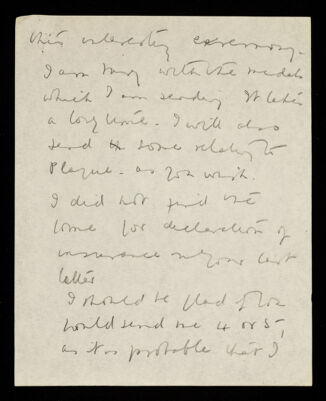 this interesting ceremony.
I am busy with the medals
which I am sending. It takes
a long time. I will also
send some relating to
Plague. as you wish.
I did not find the
form for declaration of
insurance in your last
letter
I should be glad if you
would send me 4 or 5,
as it is probable that I